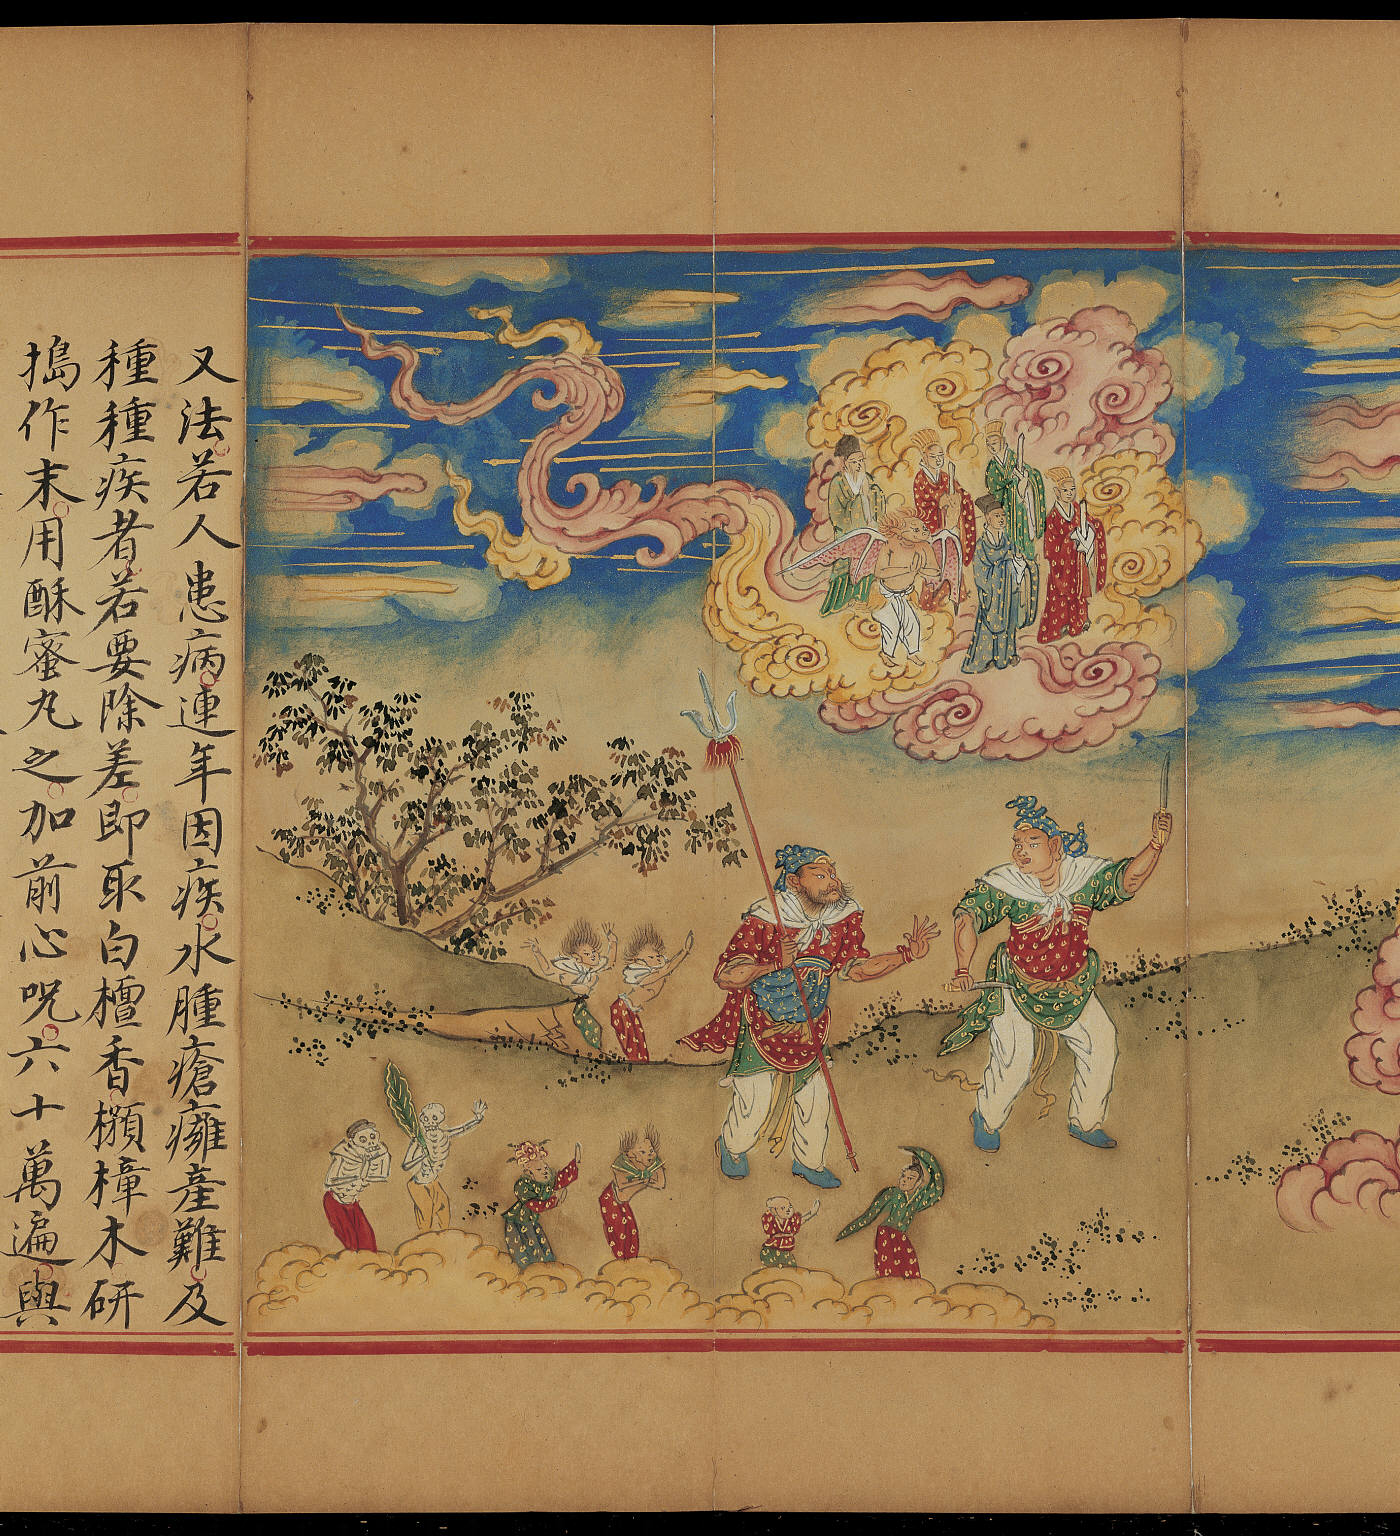 又法若人患病連年因疾水腫瘡癰產難及
種種疾者若要除差即取白檀香櫇樟木研
搗作末用酥蜜丸之加前心呪六十萬遍與